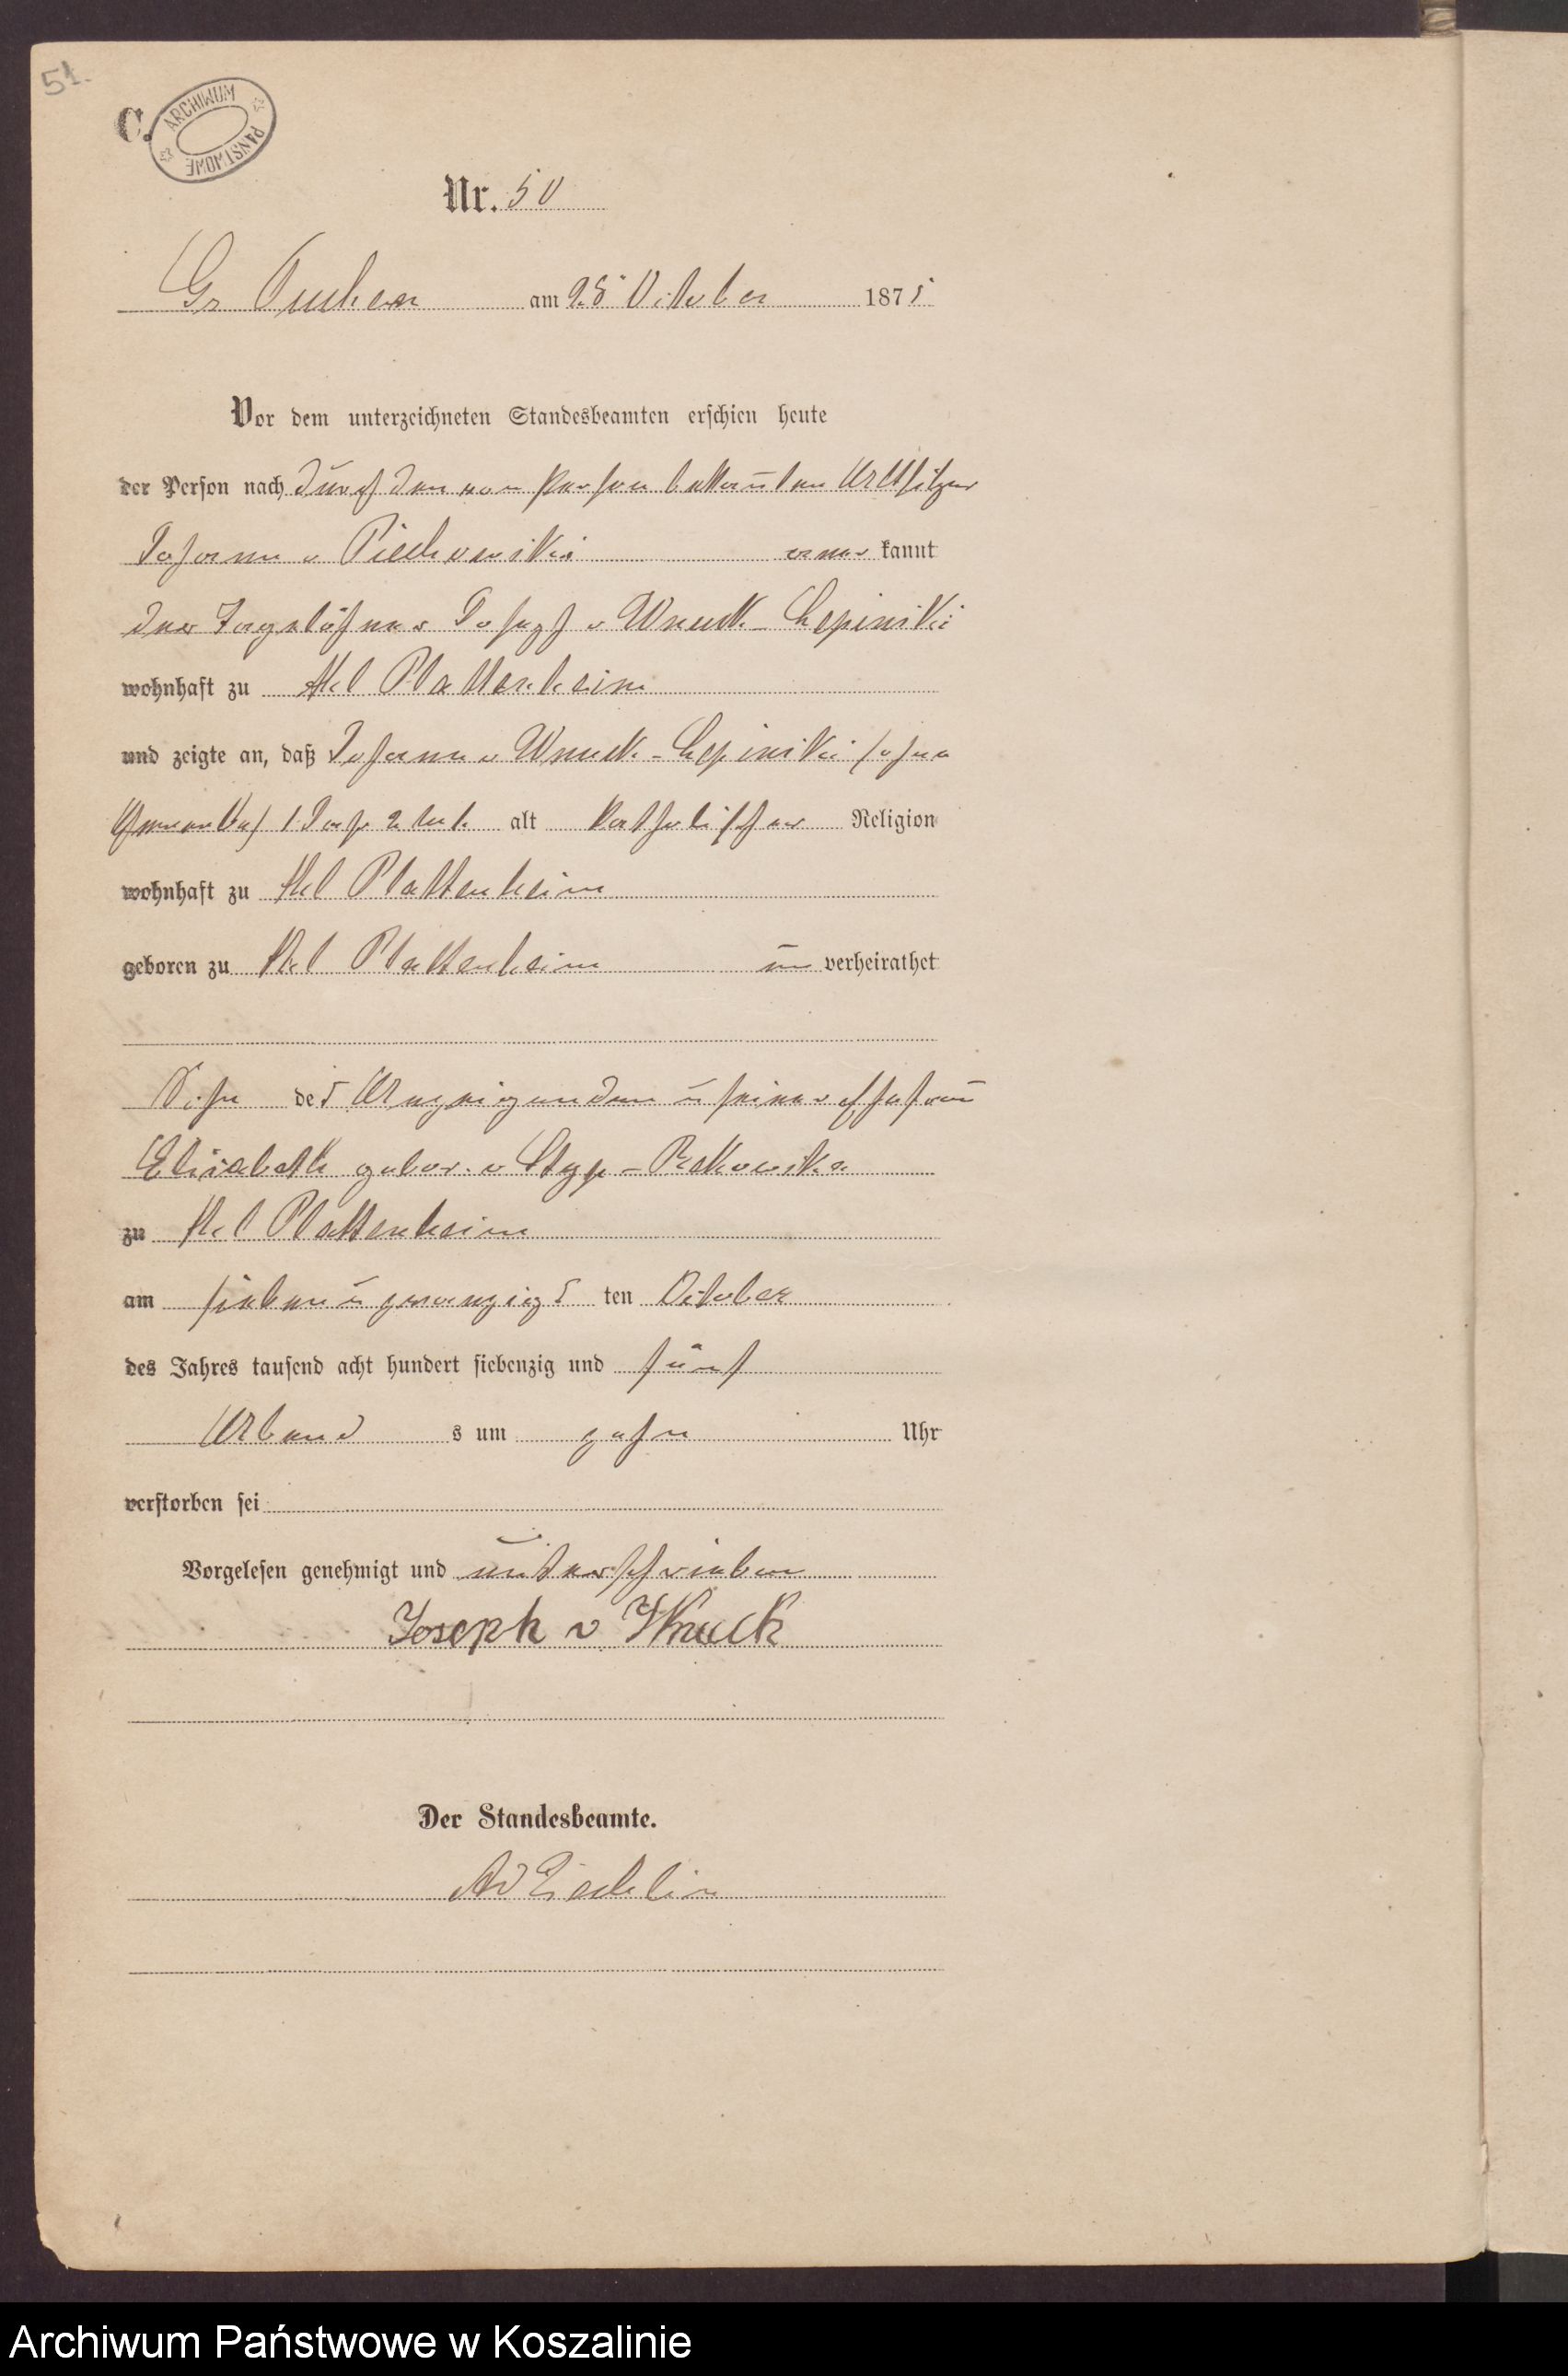 51.
C.
ARCHIWUM PAŃSTWOWE
Nr. 50
Gr Tuchen am 28 October 1875
Vor dem unterzeichneten Standesbeamten erschien heute
der Person nach durch den von Person bekannten Altsitzer
Johann v Piechowski aner kannt
der Tagelöhner Joseph v Wnuck-Lepinski
wohnhaft zu Kl Plattenheim
und zeigte an, daß Johann v Wnuck-Lepinski ohne
1 Jahr 2 alt katholischer Religion
wohnhaft zu Kl Plattenheim
geboren zu Kl Plattenheim un verheirathet
Sohn des Anzeigenden u seiner Ehefrau
Elisabeth gebor. v Styp-Rekowska
zu Kl Plattenheim
am sieben u zwanzigs ten October
des Jahres tausend acht hundert siebenzig und fünf
Abend s um zehn Uhr
verstorben sei
Vorgelesen genehmigt und unterschrieben
Joseph v Wnuck
Der Standesbeamte.
Archiwum Państwowe w Koszalinie